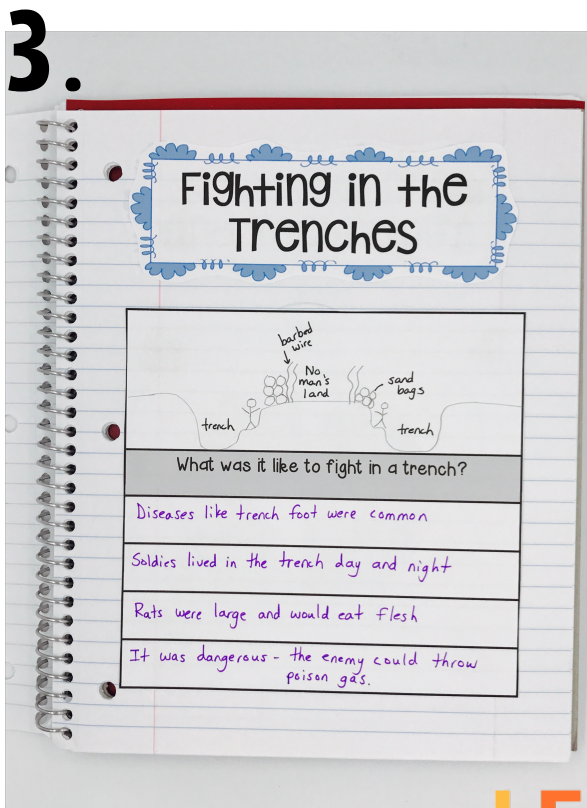 3.
Fighting in the
Trenches
barbed
wire
No
man's
land
sand
bags
trench
trench
What was it like to fight in a trench?
Diseases like trench foot were common
Soldies lived in the trench day and night
Rats were large and would eat flesh
It was dangerous - the enemy could throw
poison gas.